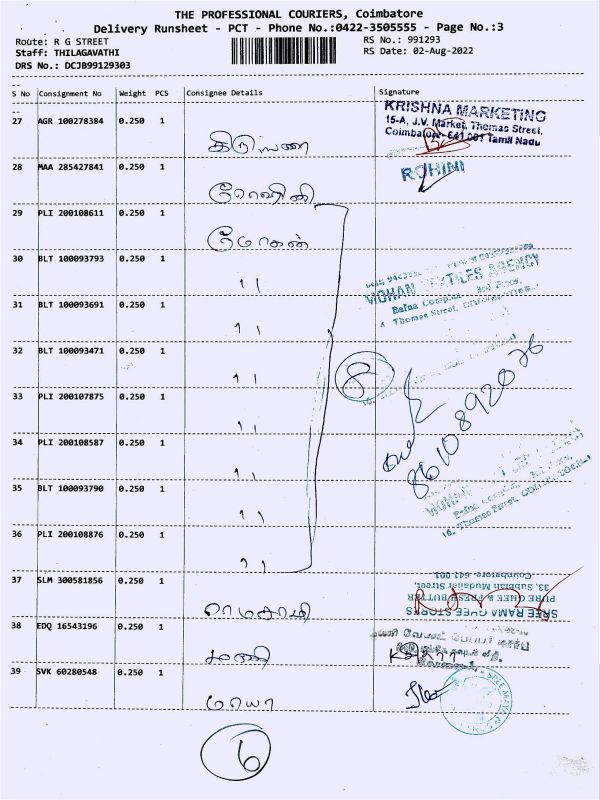 THE PROFESSIONAL COURIERS, Coimbatore
Delivery Runsheet - PCT - Phone No.:0422-3505555 - Page No.:3
Route: R G STREET
RS No.: 991293
Staff: THILAGAVATHI
RS Date: 02-Aug-2022
DRS No.: DCJB99129303
S No Consignment No Weight PCS Consignee Details Signature
27 AGR 100278384 0.250 1
KRISHNA MARKETING
15-A, J.V. Market, Thomas Street,
Coimbatore - 641 001 Tamil Nadu
28 MAA 285427841 0.250 1
ROHINI
ரோஹினி
29 PLI 200108611 0.250 1
மோகன்
30 BLT 100093793 0.250 1
MOHAN TEXTILES AGENCY
Thomas Street,
31 BLT 100093691 0.250 1
32 BLT 100093471 0.250 1
8
33 PLI 200107875 0.250 1
8610892076
34 PLI 200108587 0.250 1
35 BLT 100093790 0.250 1
16, Thomas Street,
36 PLI 200108876 0.250 1
37 SLM 300581856 0.250 1
SREE RAMA GHEE STORES
PURE GHEE & FRESH BUTTER
33, Subbiah Mudaliar Street,
Coimbatore-641 001
38 EDQ 16543196 0.250 1
மணி
39 SVK 60280548 0.250 1
மாயா
6